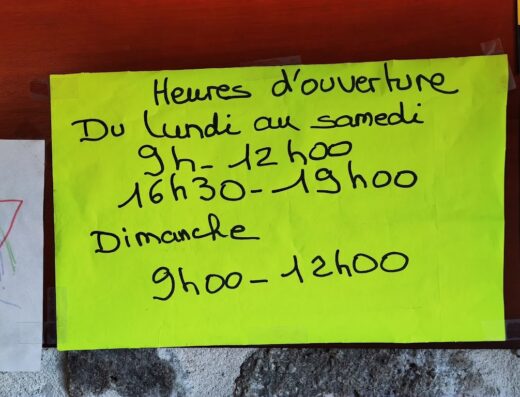 Heures d'ouverture
Du lundi au samedi
9h - 12h00
16h30 - 19h00
Dimanche
9h00 - 12h00